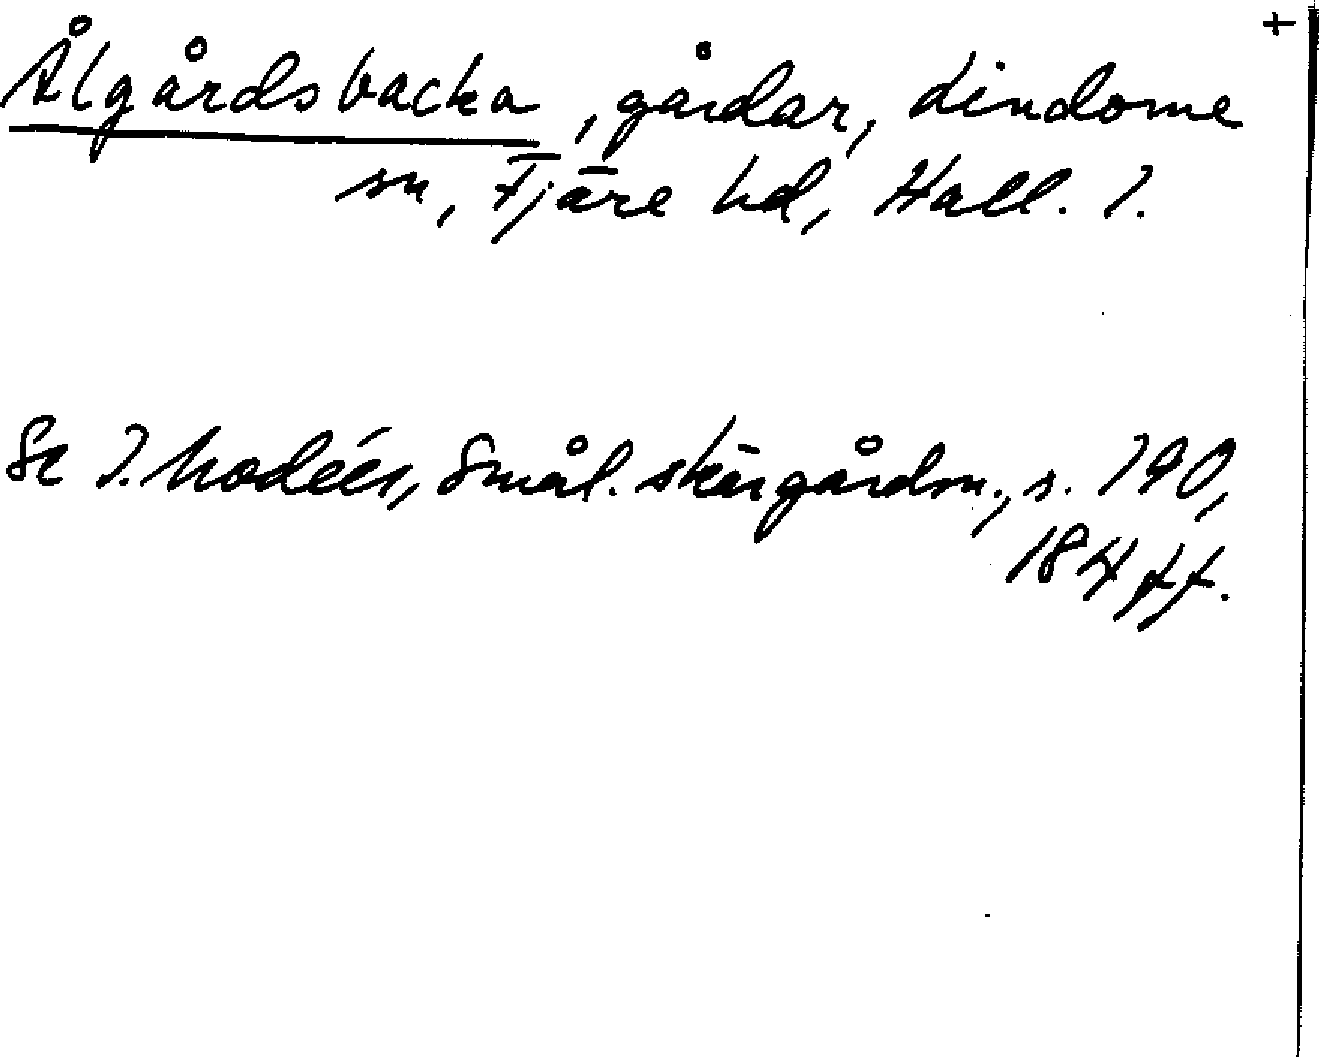 +
Ålgårdsbacka, gårdar, Lindome
sn, Fjäre hd, Hall. l.
Se I. Modéer, Smål. skärgårdsn., s. 190,
184 ff.